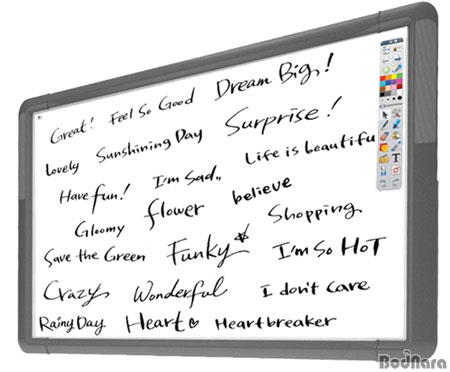 Great! Feel So Good Dream Big,!
Lovely Sunshining Day Surprise!
Have fun! I'm Sad.. Life is beautiful
Gloomy flower believe
Save the Green Funky Shopping
I'm So HoT
Crazy Wonderful I don't care
Rainy Day Heart Heartbreaker
T
BodNara